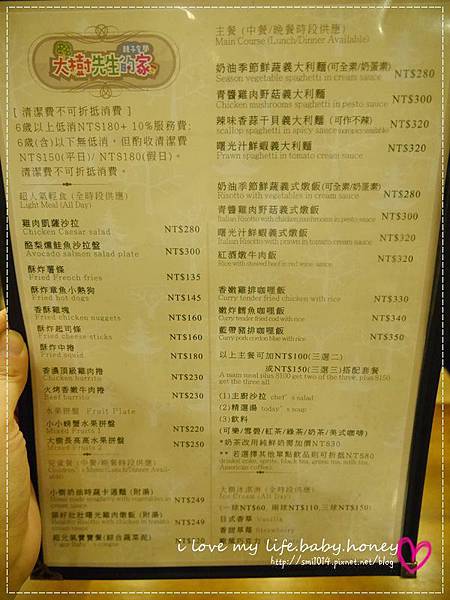 親子餐廳
大樹先生的家
[ 清潔費不可折抵消費 ]
6歲以上低消NT$180+ 10%服務費;
6歲(含)以下無低消,但酌收清潔費
NT$150(平日)/ NT$180(假日)。
清潔費不可折抵消費。
超人氣輕食 (全時段供應)
Light Meal (All Day)
雞肉凱薩沙拉
Chicken Caesar salad NT$280
酪梨燻鮭魚沙拉盤
Avocado salmon salad plate NT$300
酥炸薯條
Fried French fries NT$135
酥炸章魚小熱狗
Fried hot dogs NT$145
香酥雞塊
Fried chicken nuggets NT$160
酥炸起司條
Fried cheese sticks NT$160
酥炸中捲
Fried squid NT$180
香濃頂級雞肉捲
Chicken burrito NT$230
火烤香嫩牛肉捲
Beef burrito NT$230
水果拼盤 Fruit Plate
小小螃蟹水果拼盤
Mixed Fruits 1 NT$220
大樹長高高水果拼盤
Mixed Fruits 2 NT$250
兒童餐 (中餐/晚餐時段供應)
小樹奶油時蔬卡通麵 (附湯) NT$249
曙光雞肉燉飯 (附湯) NT$249
超元氣寶寶餐(綜合蔬菜泥)
主餐 (中餐/晚餐時段供應)
Main Course (Lunch/Dinner Available)
奶油季節鮮蔬義大利麵(可全素/奶蛋素)
Season vegetable spaghetti in cream sauce NT$280
青醬雞肉野菇義大利麵
Chicken mushrooms spaghetti in pesto sauce NT$300
辣味香蒜干貝義大利麵 (可作不辣)
scallop spaghetti in spicy sauce NT$320
曙光汁鮮蝦義大利麵
Prawn spaghetti in tomato cream sauce NT$320
奶油季節鮮蔬義式燉飯(可全素/奶蛋素)
Risotto with vegetables in cream sauce NT$280
青醬雞肉野菇義式燉飯
Italian Risotto with chicken mushrooms in pesto sauce NT$300
曙光汁鮮蝦義式燉飯
Italian Risotto with prawns in tomato cream sauce NT$320
紅酒燉牛肉飯
Rice with stewed beef in red wine sauce NT$320
香嫩雞排咖哩飯
Curry tender fried chicken with rice NT$330
嫩炸鱈魚咖哩飯
Curry tender fried cod with rice NT$340
藍帶豬排咖哩飯
Curry pork cordon blue with rice NT$350
以上主餐可加NT$100(三選二)
或NT$150(三選三)搭配套餐
A main meal plus $100 get two of the three, plus $150
get the three all
(1)主廚沙拉 chef's salad
(2)精選湯 today's soup
(3)飲料
(可樂/雪碧/紅茶/綠茶/奶茶/美式咖啡)
*奶茶改用純鮮奶需加價NT$30
**若選擇其他單點飲品則可折抵NT$80
American coffee)
大樹冰淇淋 (全時段供應)
Ice Cream (All Day)
(一球NT$60, 兩球NT$110,三球NT$150)
日式香草 Vanilla
香甜草莓 Strawberry
i love my life.baby.honey
http://smi1014.pixnet.net/blog